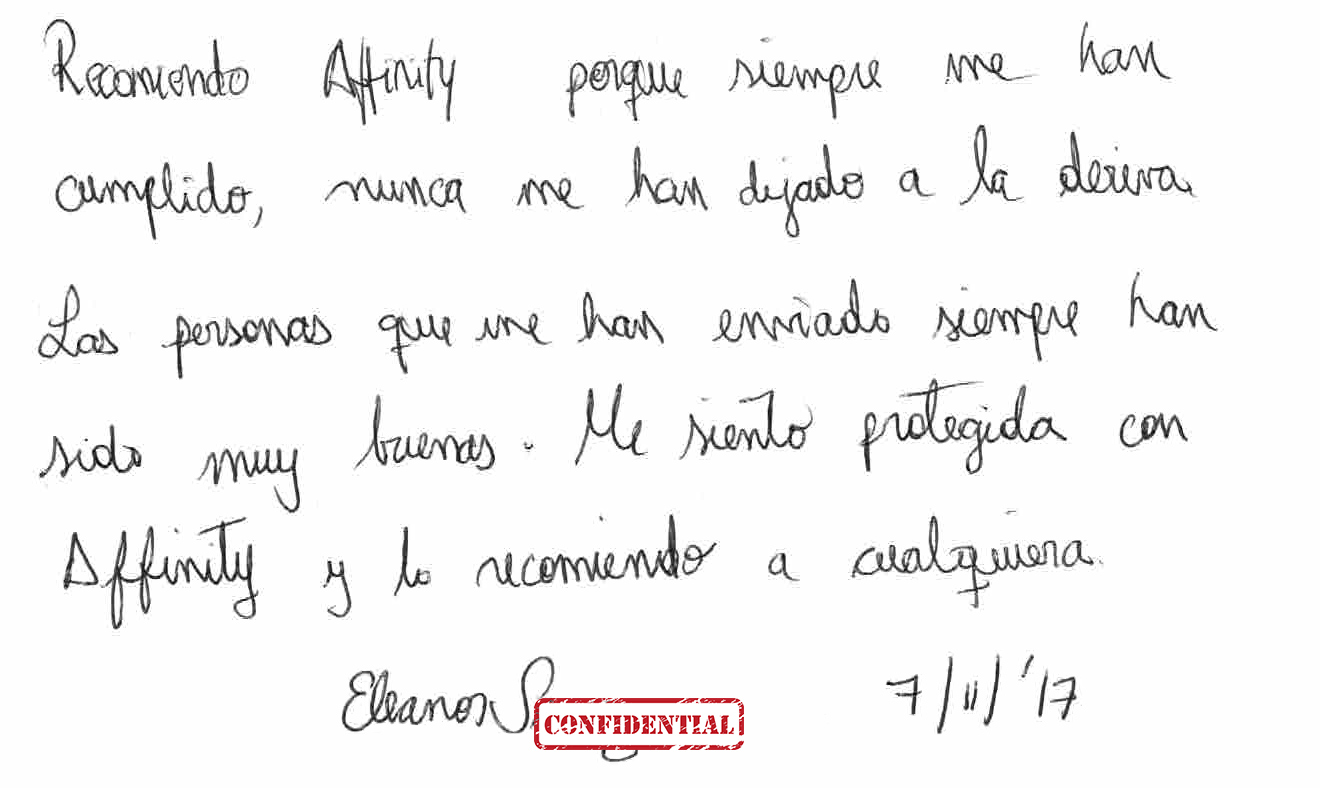 Recomiendo Affinity porque siempre me han
cumplido, nunca me han dejado a la deriva
Las personas que me han enviado siempre han
sido muy buenas. Me siento protegida con
Affinity y lo recomiendo a cualquiera.
Eleanor S 7/11/'17
CONFIDENTIAL